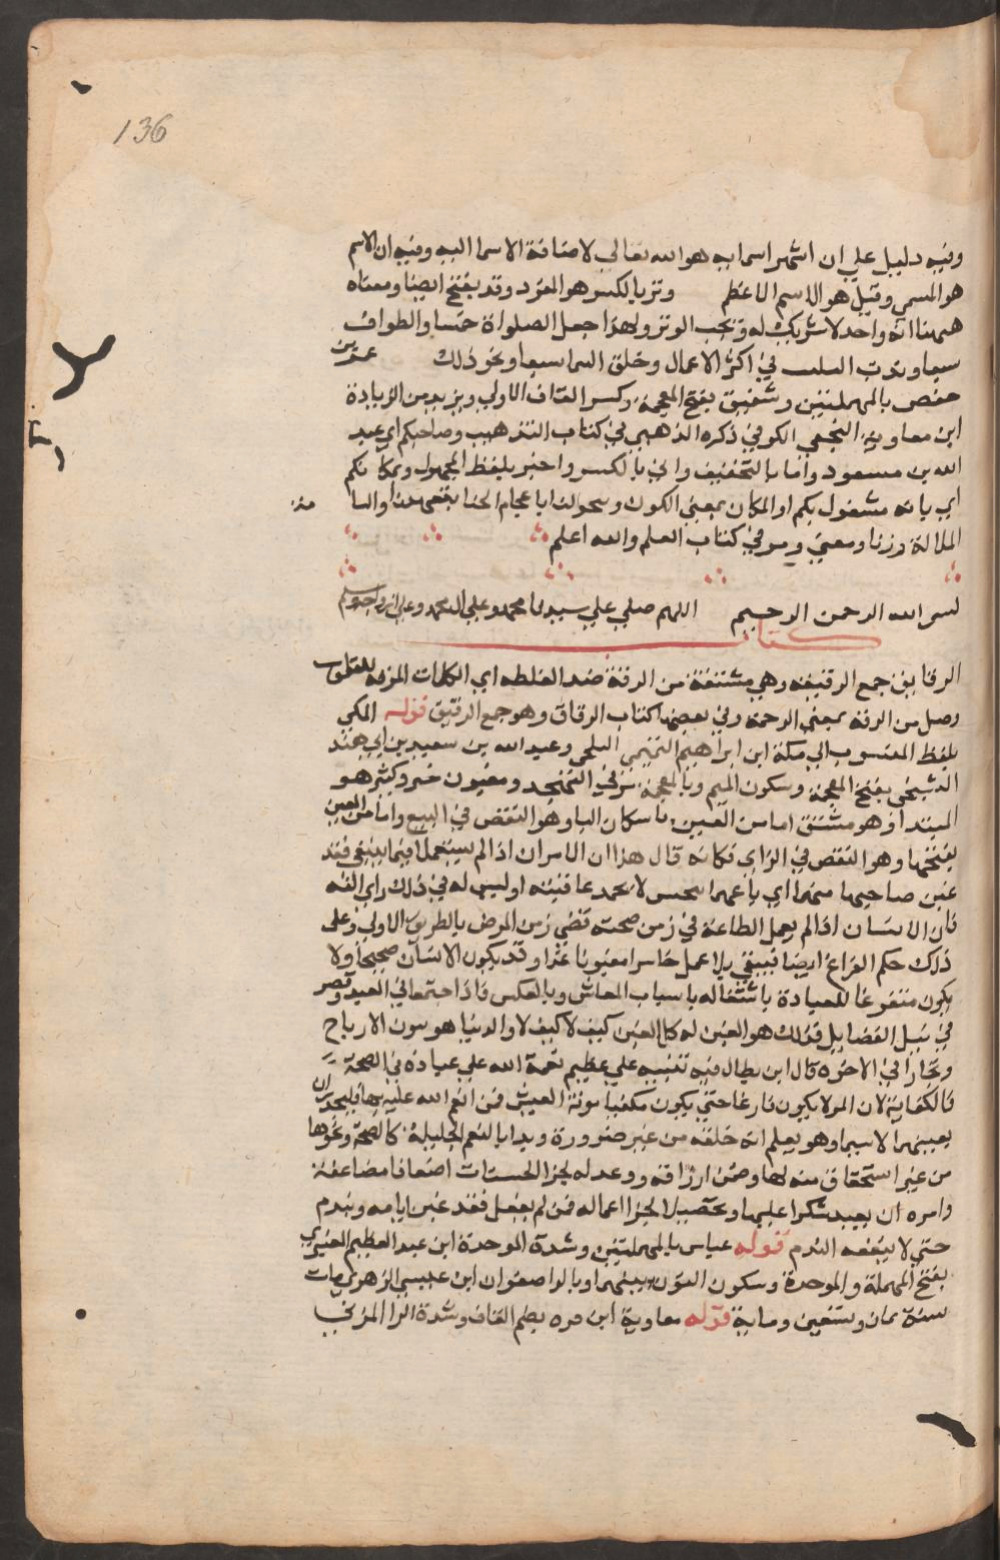 136
وفيه دليل علي ان اشهر اسمايه هو الله تعالي لاضافة الاسما اليه وفيه ان الاسم
هو المسمي وقيل هو الاسم الاعظم وتر بالكسر هو الفرد وقد يفتح ايضا ومعناه
ههنا انه واحد لا شريك له ويحب الوتر ولهذا جعل الصلواة خمسا والطواف
سبعا وندب التثليث في اكثر الاعمال وخلق السما سبعا ونحو ذلك عمر بن
حفص بالمهملتين وشقيق بفتح المعجمة وكسر القاف الاولي ويزيد من الزيادة
ابن معاوية النخعي الكوفي ذكره الذهبي في كتاب التذهيب وصاحبكم اي عبد
الله بن مسعود واما بالتخفيف واني بالكسر واخبر بلفظ المجهول وبمكانكم
اي بانه مشغول بكم او المكان بمعني الكون ويتخولنا باعجام الخا يتعهدنا والسا مة
الملالة وزنا ومعني ومر في كتاب العلم والله اعلم
بسم الله الرحمن الرحيم اللهم صلي علي سيدنا محمد وعلي ال محمد وعلي ازواجه وسلم
كتاب
الرقايق جمع الرقيقة وهي مشتقة من الرقة ضد الغلظه اي الكلمات المرققه للقلوب
وصل من الرقة بمعني الرحمة وفي بعضها كتاب الرقاق وهو جمع الرقيق قوله المكي
بلفظ المنسوب الي مكة ابن ابراهيم التميمي البلخي وعبد الله بن سعيد بن ابي هند
الشمخي بفتح المعجمة وسكون الميم وبالمعجمة مر في التهجد ومغبون خبر وكثير هو
المبتدا وهو مشتق اما من الغبن باسكان البا وهو النقص في البيع واما من الغبن
بفتحها وهو النقص في الراي فكانه قال هذان الامران اذا لم يستعملا فيما ينبغي فقد
غبن صاحبهما فيهما اي باعهما ببخس لا تحمد عاقبته او ليس له في ذلك راي البته
فان الانسان اذا لم يعمل الطاعة في زمن صحته ففي زمن المرض بالطريق الاولي وعلى
ذلك حكم الفراغ ايضا فيبقي بلا عمل خاسرا مغبونا هذا وقد يكون الانسان صحيحا ولا
يكون متفرغا للعبادة باشتغاله باسباب المعاش وبالعكس فاذا اجتمعا في العبد وقصر
في نيل الفضايل فذلك هو الغبن له كل الغبن كيف لا كيف لا والدنيا هو سوق الارباح
وتجارا في الاخره قال ابن بطال فيه تنبيه علي عظيم نعمة الله علي عباده في الصحة
فالكفاية لان المرلا يكون فارغا حتي يكون مكفيا مونة العيش فمن انعم الله عليه بهما فليحذر ان
يغبنهما لا سيما وهو يعلم انه خلقه من غير ضرورة وبدا بالنعم الجليلة كالصحة ونحوها
من غير استحقاق منه لها وضمن ارزاقه ووعد له بجزا الحسنات اضعافا مضاعفة
وامره ان يعبد شكرا عليها وتحصيلا لجزا اعماله فمن لم يفعل فقد غبن ايامه ويندم
حتي لا ينفعه الندم قوله عباس بالمهملتين وشدة الموحدة ابن عبد العظيم العنبري
بفتح المهملة والموحدة وسكون النون بينهما وبالرا صفوان ابن عيسي الزهري مات
سنة ثمان وتسعين وماية قوله معاوية ابن قره بضم القاف وشدة الرا المزني